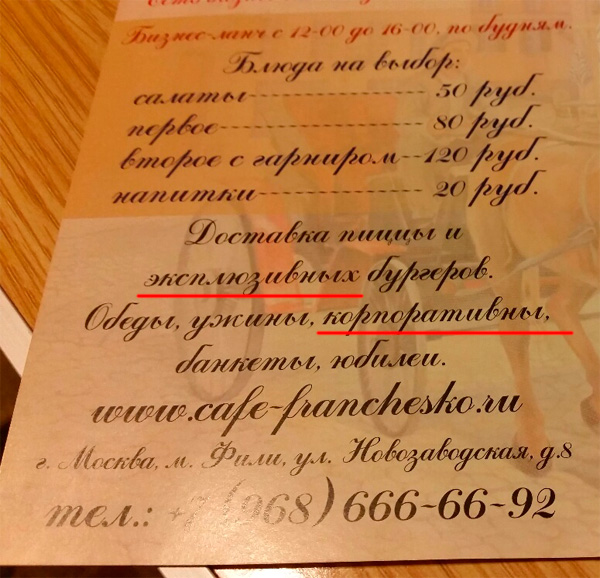 Бизнес-ланч с 12-00 до 16-00, по будням.
Блюда на выбор:
салаты---------------------- 50 руб.
первое---------------------- 80 руб.
второе с гарниром--120 руб.
напитки------------------- 20 руб.
Доставка пиццы и
эксплюзивных бургеров.
Обеды, ужины, корпоративны,
банкеты, юбилеи.
www.cafe-franchesko.ru
г. Москва, м. Фили, ул. Новозаводская, д.8
тел.: +7 (968) 666-66-92